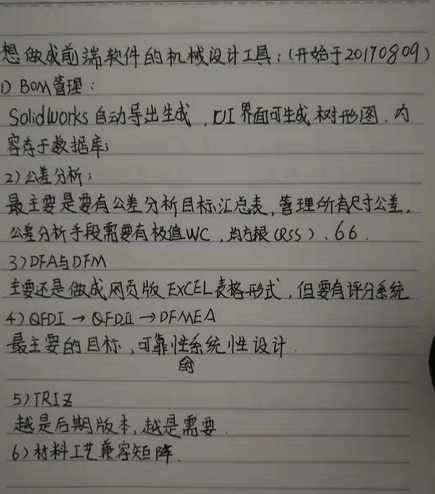 想做成前端软件的机械设计工具:(开始于20170809)
1) BOM管理:
Solidworks自动导出生成,UI界面可生成树形图,内
容存于数据库;
2)公差分析:
最主要是要有公差分析目标汇总表,管理所有尺寸公差,
公差分析手段需要有极值WC,均方根(RSS),6σ.
3)DFA与DFM
主要还是做成网页版EXCEL表格形式,但要有评分系统
4) QFDI → QFDII → DFMEA
最主要的目标,可靠性系统性设计.
的
5)TRIZ
越是后期版本,越是需要.
6)材料工艺兼容矩阵.